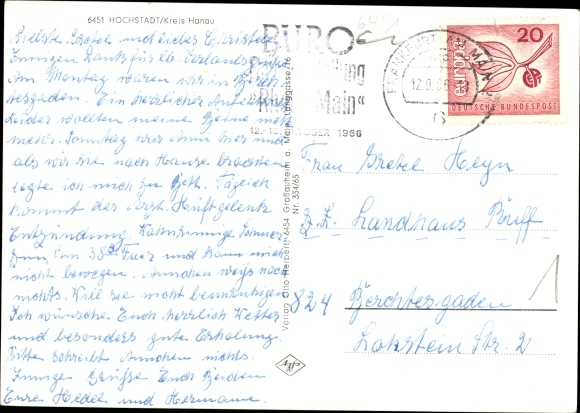 6451 HOCHSTADT/Kreis Hanau
Liebste Gretel und liebes Christel
Innigen Dank für lb. Verlandsgrüße
Am Montag waren wir in Berch
tesgaden. Ein herrlicher
Leider wollten meine Beine nicht
mehr. Sonntag war Ann hier und
als wir sie nach Hause brachten
legte ich mich zu Bett. Täglich
kommt der Arzt. Hüftgelenk
Entzündung. Wahnsinnige Schmer
zen, bin 38° Fieb und kann mich
nicht bewegen. Annchen weiß noch
nichts. Will sie nicht beunruhigen
Ich wünsche Euch herrlich Wetter
und besonders gute Erholung.
Bitte schreibt Annchen nichts.
Innige Grüße Euch Beiden
Eure Hedel und Hermann.
Verlag Otto Herbert, 6454 Großauheim a. Main, Langgasse 16
Nr. 334/65
BÜRO
Main"
12.-16. OKTOBER 1966
FRANKFURT AM MAIN 2
12.9.66
europa
20
DEUTSCHE BUNDESPOST
Frau Gretel Heyn
z. Z. Landhaus
824 Berchtesgaden
Lokstein Str. 2
1